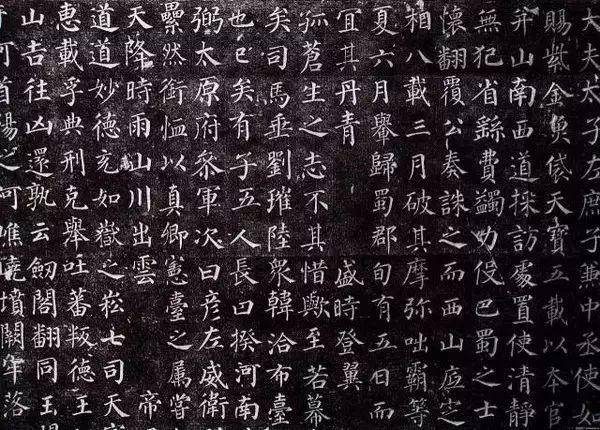 大夫太子左庶子兼中丞使如
賜紫金魚袋天寶五載以本官
弁山南西道採訪處置使清靜
無犯省繇費蠲力役巴蜀之士
懷翻覆公奏誅之而西山底定
相八載三月破其摩弥咄霸等
夏六月轝歸蜀郡旬有五日而
宜其丹青 盛時登翼
孤蒼生之志不其惜歟至若幕
矣司馬垂劉璀陸衆韓洽布臺
也已矣有子五人長曰揆河南
弼太原府叅軍次曰彦左威衛
纍然銜恤以真卿憲臺之属嘗
天降時雨山川出雲 帝
道道妙德充如嶽之崧七司天
惠載孚典刑克舉吐蕃叛德王
山吉往凶還孰云劔閣翻同玉
可首陽之阿嶕嶢墳闕牢落